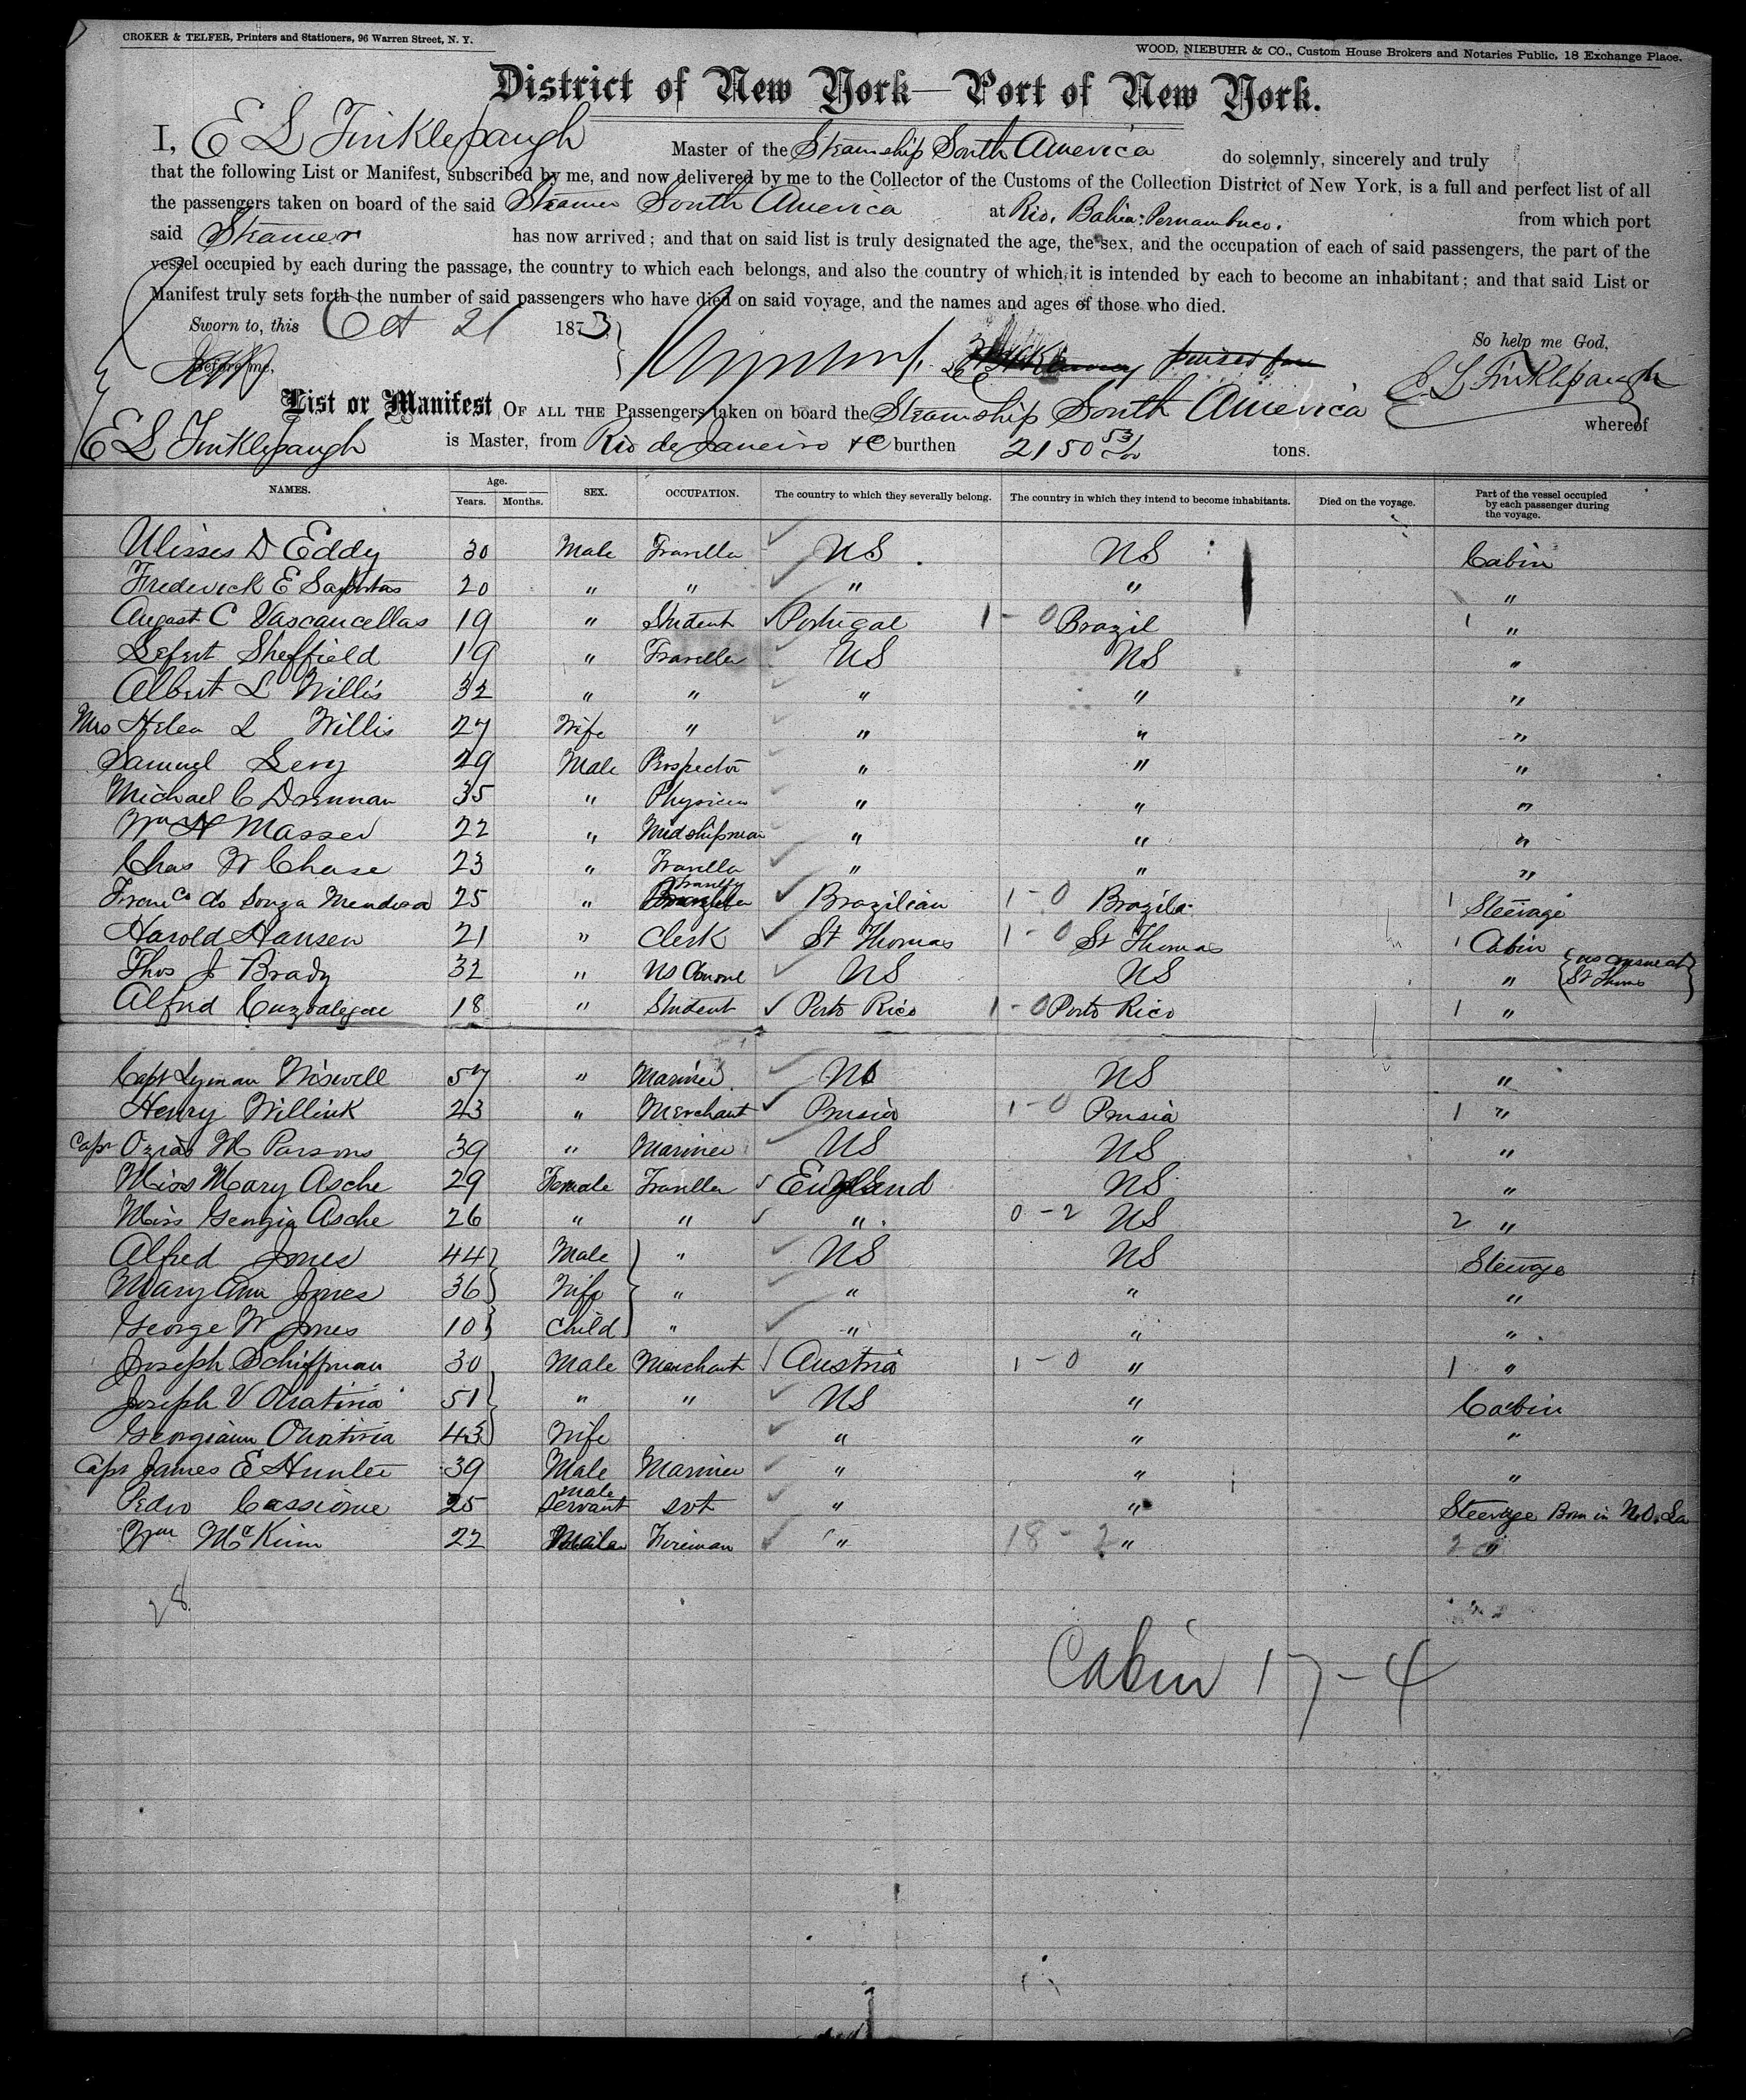 CROKER & TELFER, Printers and Stationers, 96 Warren Street, N. Y.
WOOD, NIEBUHR & CO., Custom House Brokers and Notaries Public, 18 Exchange Place.
District of New York—Port of New York.
I, E L Tinklepaugh Master of the Steamship South America do solemnly, sincerely and truly
that the following List or Manifest, subscribed by me, and now delivered by me to the Collector of the Customs of the Collection District of New York, is a full and perfect list of all
the passengers taken on board of the said Steamer South America at Rio, Bahia: Pernambuco. from which port
said Steamer has now arrived; and that on said list is truly designated the age, the sex, and the occupation of each of said passengers, the part of the
vessel occupied by each during the passage, the country to which each belongs, and also the country of which it is intended by each to become an inhabitant; and that said List or
Manifest truly sets forth the number of said passengers who have died on said voyage, and the names and ages of those who died.
Sworn to, this Oct 21 1873 So help me God,
Before me, E L Tinklepaugh
List or Manifest OF ALL THE Passengers taken on board the Steamship South America whereof
E L Tinklepaugh is Master, from Rio de Janeiro &c burthen 2150 53/100 tons.
NAMES. Age. Years. Months. SEX. OCCUPATION. The country to which they severally belong. The country in which they intend to become inhabitants. Died on the voyage. Part of the vessel occupied by each passenger during the voyage.
Ulisses D Eddy 30 Male Traveller US US Cabin
Frederick E 20 " " " " "
August C Vascancellas 19 " Student Portugal 1-0 Brazil 1 "
Sheffield 19 " Traveller US US "
Albert L Willis 32 " " " " "
Mrs Helen L Willis 27 Wife " " " "
Samuel Levy 29 Male Prospector " " "
Michael C Drennan 35 " Physician " " "
Wm H Masser 22 " Midshipman " " "
Chas W Chase 23 " Traveller " " "
Franco do Souza Mendosa 25 " Traveller Brazilian 1-0 Brazila 1 Steerage
Harold Hansen 21 " Clerk St Thomas 1-0 St Thomas 1 Cabin
Thos J Brady 32 " US Consul US US " {US Consul at St Thomas}
Alfred 18 " Student Porto Rico 1-0 Porto Rico 1 "
Capt Lyman Wiswell 57 " Mariner US US "
Henry Willink 23 " Merchant Prusia 1-0 Prusia 1 "
Capt Ozias M Parsons 39 " Mariner US US "
Miss Mary Asche 29 Female Traveller England US "
Miss Georgia Asche 26 " " " 0-2 US 2 "
Alfred Jones 44 Male " US US Steerage
Mary Ann Jones 36 Wife " " " "
George W Jones 10 Child " " " "
Joseph Schiffman 30 Male Merchant Austria 1-0 " 1 "
Joseph V Onativia 51 " " US " Cabin
Georgiann Onativia 43 Wife " " "
Capt James E Hunter 39 Male Mariner " " "
Pedro Cassiome 25 Male Servant svt " " Steerage Born in N.O. La
Wm McKinn 22 Male Fireman " 18-2 " 2 "
28
Cabin 17-4